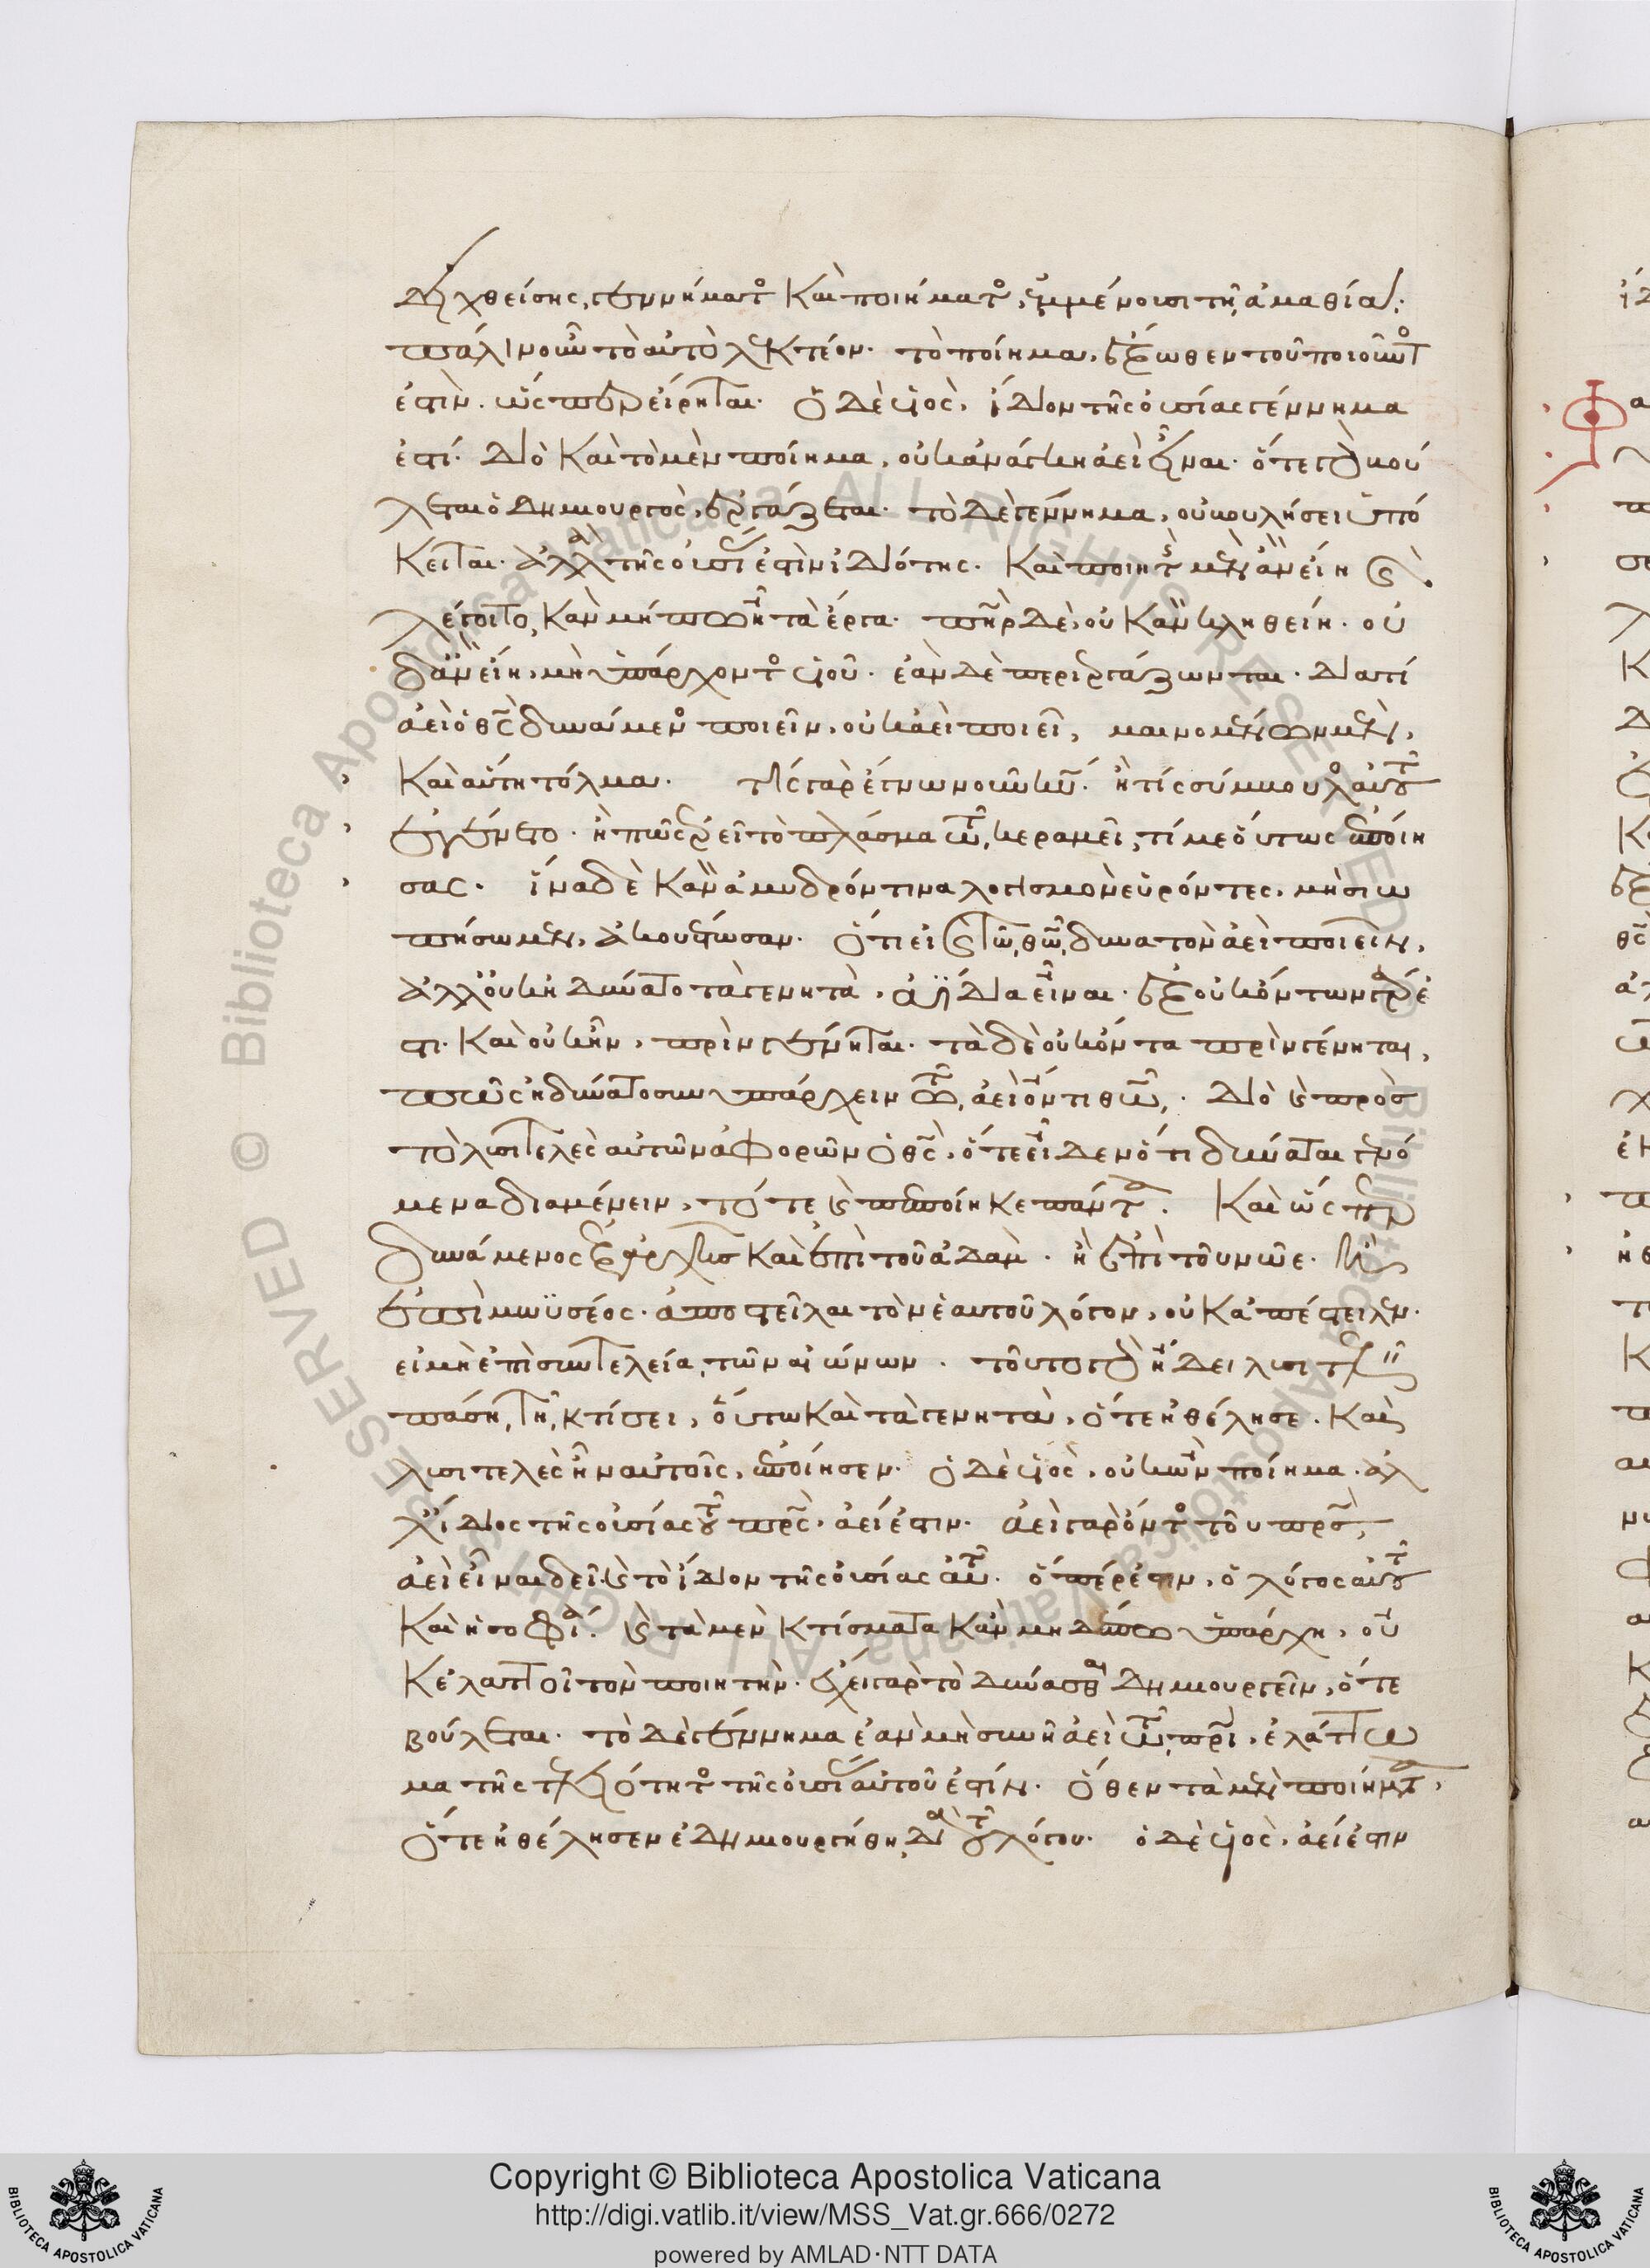 δειχθείσης, γεννήματος καὶ ποιήματος, ἐμμένουσι τῇ ἀμαθίᾳ.
πάλιν οὖν τὸ αὐτὸ λεκτέον. τὸ ποίημα, ἔξωθεν τοῦ ποιοῦντος
ἐστιν. ὥσπερ εἴρηται. ὁ δὲ υἱὸς, ἴδιον τῆς οὐσίας γέννημα
ἐστί. διὸ καὶ τὸ μὲν ποίημα, οὐκ ἀνάγκη ἀεὶ εἶναι. ὅτε γὰρ βού
λεται ὁ δημιουργὸς, ἐργάζεται. τὸ δὲ γέννημα, οὐ βουλήσει ὑπό
κειται. ἀλλὰ τῆς οὐσίας ἐστὶν ἰδιότης. καὶ ποιητὴς μὲν ἂν εἴη καὶ
λέγοιτο, κἂν μήπω ᾖ τὰ ἔργα. πατὴρ δὲ, οὐκ ἂν κληθείη. οὐ
δ' ἂν εἴη, μὴ ὑπάρχοντος υἱοῦ. ἐὰν δὲ περιεργάζωνται. διατί
ἀεὶ ὁ θς δυνάμενος ποιεῖν, οὐκ ἀεὶ ποιεῖ, μαινομένων μὲν,
καὶ αὕτη τόλμα. τίς γὰρ ἔγνω νοῦν κυ. ἢ τίς σύμβουλος αὐτοῦ
ἐγένετο. ἢ πῶς ἐρεῖ τὸ πλάσμα τῷ κεραμεῖ, τί με οὕτως ἐποίη
σας. ἵνα δὲ κἂν ἀμυδρόν τινα λογισμὸν εὑρόντες, μὴ σιω
πήσωμεν, ἀκουέτωσαν. ὅτι εἰ καὶ τῷ θῷ δυνατὸν ἀεὶ ποιεῖν,
ἀλλ' οὐκ ἠδύνατο τὰ γενητὰ, ἀΐδια εἶναι. ἐξ οὐκ ὄντων γάρ ἐ
στι. καὶ οὐκ ἦν, πρὶν γένηται. τὰ δὲ οὐκ ὄντα πρὶν γένηται,
πῶς ἠδύνατο συνυπάρχειν τῷ ἀεὶ ὄντι θῷ. διὸ καὶ πρὸς
τὸ λυσιτελὲς αὐτῶν ἀφορῶν ὁ θς, ὅτε εἶδεν ὅτι δύναται γενό
μενα διαμένειν, τότε καὶ πεποίηκε πάντα. καὶ ὥσπερ
δυνάμενος ἐξ ἀρχῆς καὶ ἐπὶ τοῦ ἀδὰμ. ἢ ἐπὶ τοῦ νῶε. ἢ
ἐπὶ μωϋσέος. ἀποστεῖλαι τὸν ἑαυτοῦ λόγον, οὐκ ἀπέστειλεν.
εἰ μὴ ἐπὶ συντελείᾳ τῶν αἰώνων. τοῦτο γὰρ ᾔδει λυσιτελεῖν
πάσῃ τῇ κτίσει, οὕτω καὶ τὰ γενητὰ, ὅτε ἠθέλησε. καὶ
λυσιτελὲς ἦν αὐτοῖς, ἐποίησεν. ὁ δὲ υἱὸς, οὐκ ὢν ποίημα. ἀλ
λ' ἴδιος τῆς οὐσίας τοῦ πρς, ἀεί ἐστιν. ἀεὶ γὰρ ὄντος τοῦ πρς,
ἀεὶ εἶναι δεῖ καὶ τὸ ἴδιον τῆς οὐσίας αὐτοῦ. ὅπέρ ἐστιν, ὁ λόγος αὐτοῦ
καὶ ἡ σοφία. καὶ τὰ μὲν κτίσματα κἂν μηδέπω ὑπάρχῃ, οὐ
κ ἐλαττοῖ τὸν ποιητὴν. ἔχει γὰρ τὸ δύνασθαι δημιουργεῖν, ὅτε
βούλεται. τὸ δὲ γέννημα ἐὰν μὴ συνῇ ἀεὶ τῷ πρι, ἐλάττω
μα τῆς τελειότητος τῆς οὐσίας αὐτοῦ ἐστίν. ὅθεν τὰ μὲν ποιήματα,
ὅτε ἠθέλησεν ἐδημιουργήθη, διὰ τοῦ λόγου. ὁ δὲ υἱὸς, ἀεί ἐστιν
Copyright © Biblioteca Apostolica Vaticana
http://digi.vatlib.it/view/MSS_Vat.gr.666/0272
powered by AMLAD·NTT DATA